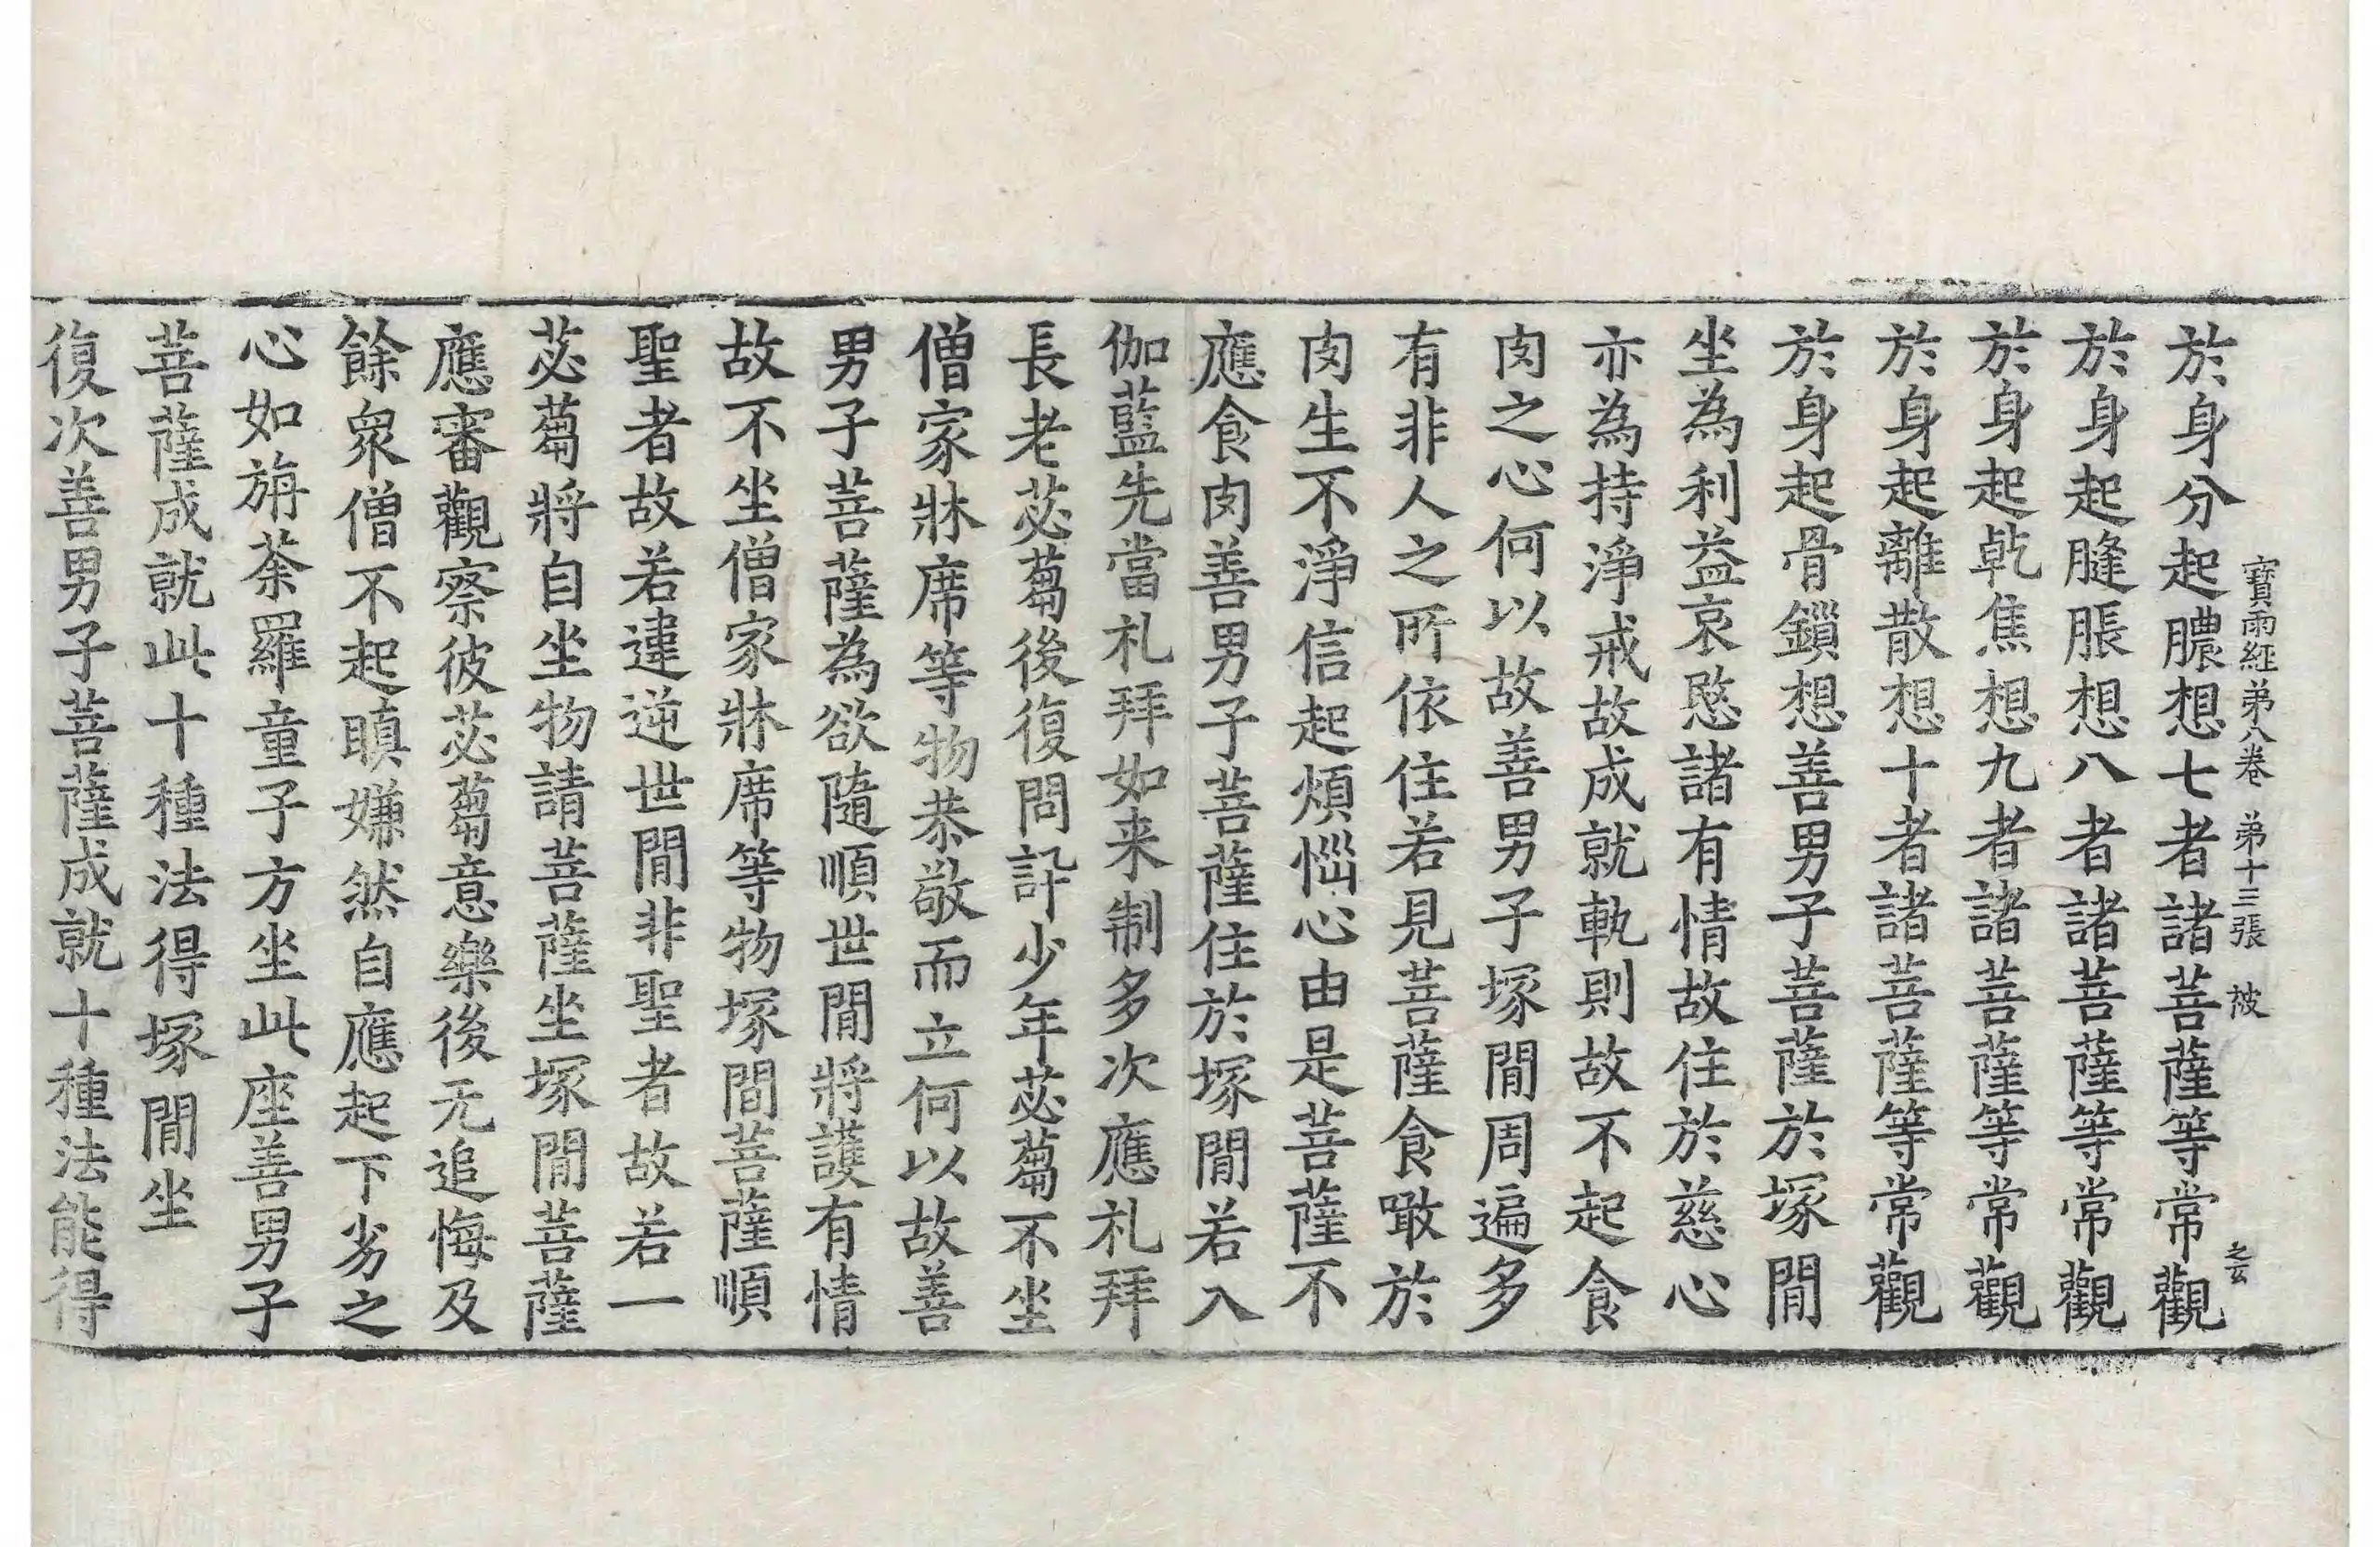 寶雨經弟八卷 弟十三張 被
之云
於身分起膿想七者諸菩薩等常觀
於身起膖脹想八者諸菩薩等常觀
於身起乹焦想九者諸菩薩等常觀
於身起離散想十者諸菩薩等常觀
於身起骨鎻想善男子菩薩於塚閒
坐為利益哀愍諸有情故住於慈心
亦為持淨戒故成就軌則故不起食
肉之心何以故善男子塚閒周遍多
有非人之所依住若見菩薩食噉於
肉生不淨信起煩惱心由是菩薩不
應食肉善男子菩薩住於塚閒若入
伽藍先當礼拜如来制多次應礼拜
長老苾蒭後復問訃少年苾蒭不坐
僧家牀席等物恭敬而立何以故善
男子菩薩為欲隨順世閒將護有情
故不坐僧家牀席等物塚間菩薩順
聖者故若違逆世閒非聖者故若一
苾蒭將自坐物請菩薩坐塚閒菩薩
應審觀察彼苾蒭意樂後无追悔及
餘衆僧不起瞋嫌然自應起下劣之
心如旃荼羅童子方坐此座善男子
菩薩成就此十種法得塚閒坐
復次善男子菩薩成就十種法能得